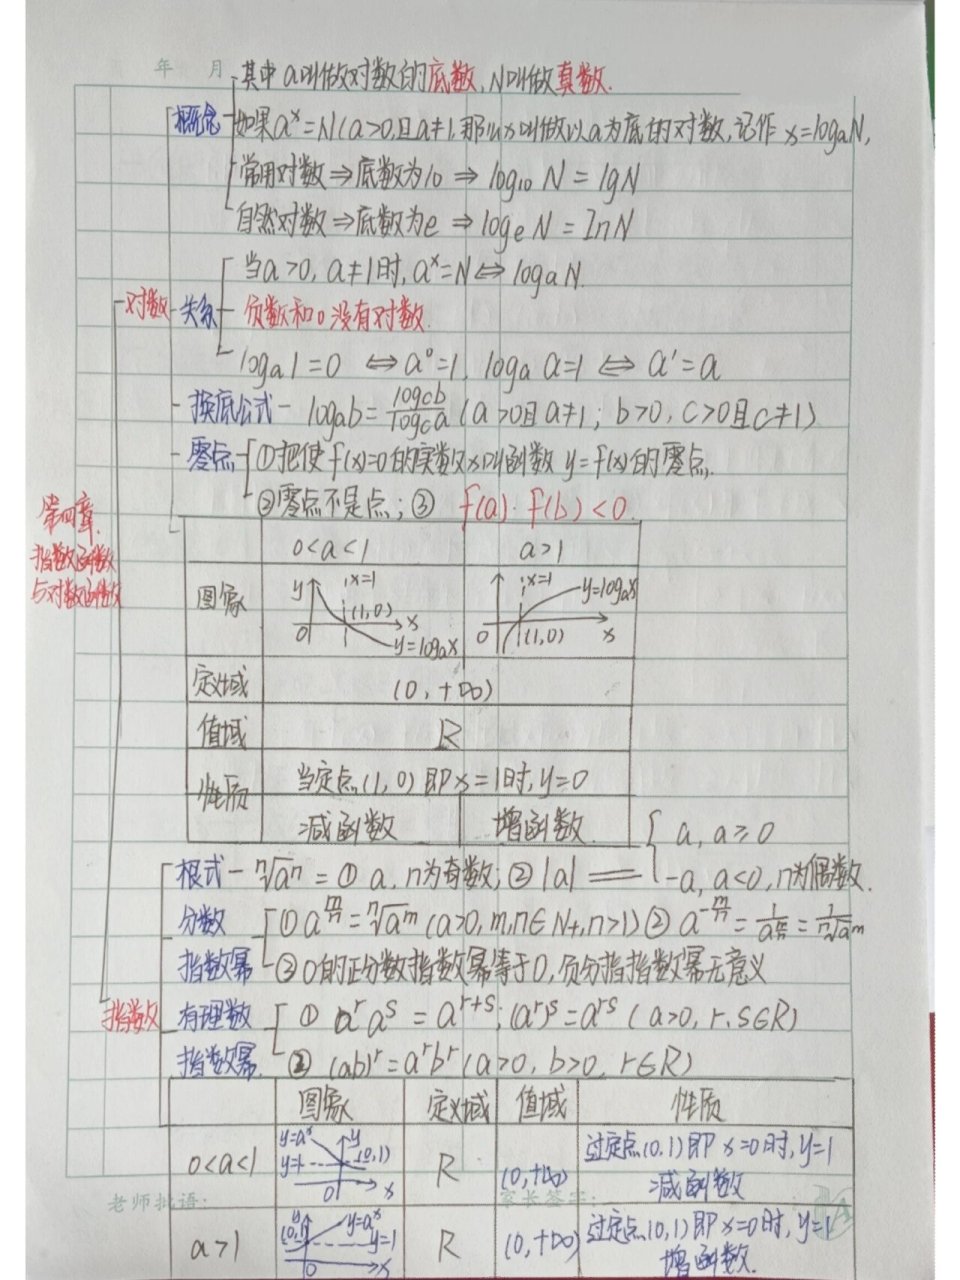 年 月
其中a叫做对数的底数,N叫做真数.
概念
如果aˣ=N(a>0,且a≠1,那么x叫做以a为底的对数,记作 x=logₐN,
常用对数⇒底数为10⇒log₁₀N=lgN
自然对数⇒底数为e⇒logₑN=InN
对数
关系
当a>0,a≠1时,aˣ=N⇔logₐN.
负数和0没有对数.
logₐ1=0 ⇔a⁰=1, logₐa=1⇔a¹=a
换底公式- logₐb=log_c b/log_c a(a>0且a≠1; b>0, c>0且c≠1)
零点 ①把使f(x)=0的实数x叫函数y=f(x)的零点.
②零点不是点; ③ f(a)·f(b)<0.
第四章.
指数函数
与对数函数
0<a<1 a>1
图象 y x=1 (1,0) x 0 y=logₐx x=1 y=logₐx 0 (1,0) x
定义域 (0,+∞)
值域 R
性质 当定点(1,0)即x=1时,y=0
减函数 增函数.
根式- ⁿ√aⁿ=① a, n为奇数; ② |a| = { a, a≥0
-a, a<0, n为偶数.
指数
分数
指数幂
①a^(m/n)=ⁿ√aᵐ(a>0,m,n∈N+,n>1)② a^(-m/n)=1/a^(m/n)=1/ⁿ√aᵐ
③0的正分数指数幂等于0,负分指指数幂无意义
有理数
指数幂.
① aʳaˢ=aʳ⁺ˢ; (aʳ)ˢ=aʳˢ (a>0, r,s∈R)
② (ab)ʳ=aʳbʳ(a>0, b>0, r∈R)
图象 定义域 值域 性质
0<a<1 y=aˣ y y=1 (0,1) 0 x R (0,+∞) 过定点(0,1)即x=0时,y=1
减函数
老师批语: 家长签字:
a>1 y (0,1) y=aˣ y=1 0 x R (0,+∞) 过定点(0,1)即x=0时,y=1
增函数.